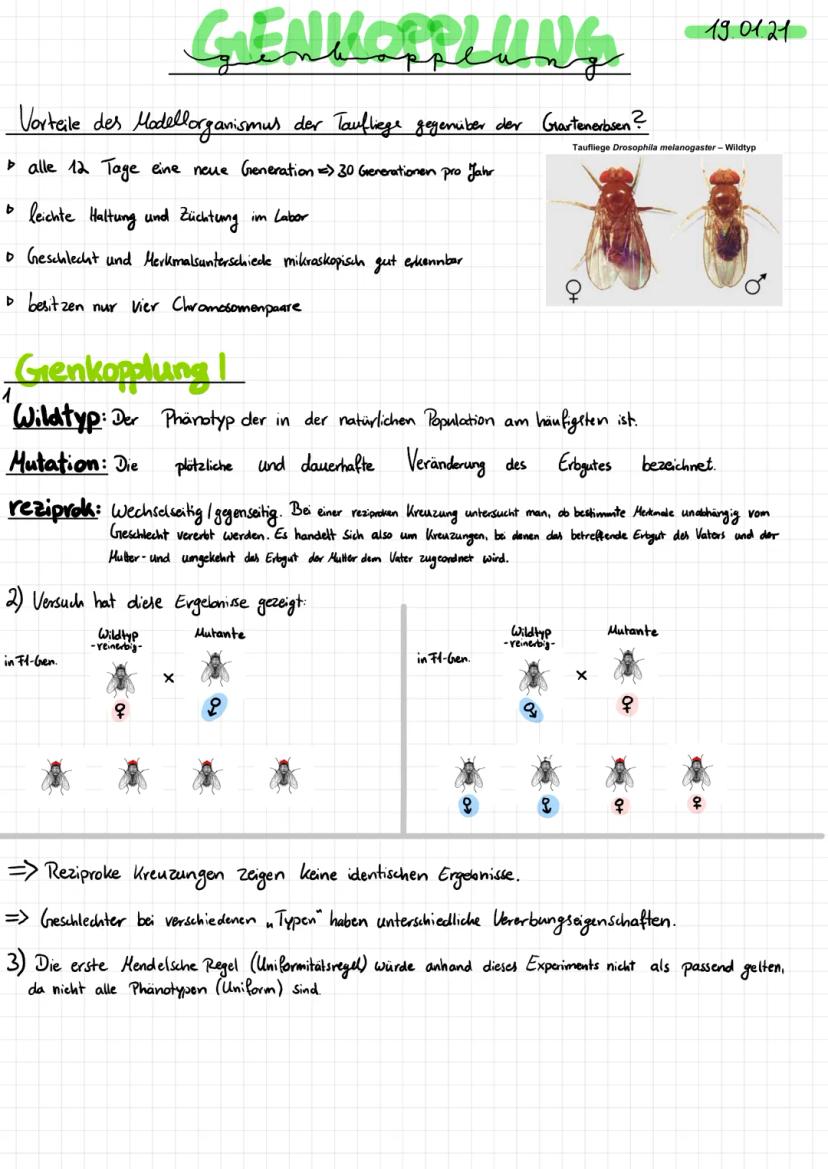 GENKOPPLUNG
genkopplung
19.01.21
Vorteile des Modellorganismus der Taufliege gegenüber der Gartenerbsen?
Taufliege Drosophila melanogaster – Wildtyp
▷ alle 12 Tage eine neue Generation => 30 Generationen pro Jahr
▷ leichte Haltung und Züchtung im Labor
▷ Geschlecht und Merkmalsunterschiede mikroskopisch gut erkennbar
▷ besitzen nur vier Chromosomenpaare
♀ ♂
Genkopplung I
1
Wildtyp: Der Phänotyp der in der natürlichen Population am häufigsten ist.
Mutation: Die plötzliche und dauerhafte Veränderung des Erbgutes bezeichnet.
reziprok: Wechselseitig / gegenseitig. Bei einer reziproken Kreuzung untersucht man, ob bestimmte Merkmale unabhängig vom
Geschlecht vererbt werden. Es handelt sich also um Kreuzungen, bei denen das betreffende Erbgut des Vaters und der
Mutter - und umgekehrt das Erbgut der Mutter dem Vater zugeordnet wird.
2) Versuch hat diese Ergebnisse gezeigt:
Wildtyp Mutante
-reinerbig-
in F1-Gen.
x
♀ ♂
Wildtyp Mutante
-reinerbig-
in F1-Gen.
x
♂ ♀
♂ ♂ ♀ ♀
=> Reziproke Kreuzungen zeigen keine identischen Ergebnisse.
=> Geschlechter bei verschiedenen „Typen" haben unterschiedliche Vererbungseigenschaften.
3) Die erste Mendelsche Regel (Uniformitätsregel) würde anhand dieses Experiments nicht als passend gelten,
da nicht alle Phänotypen (Uniform) sind.